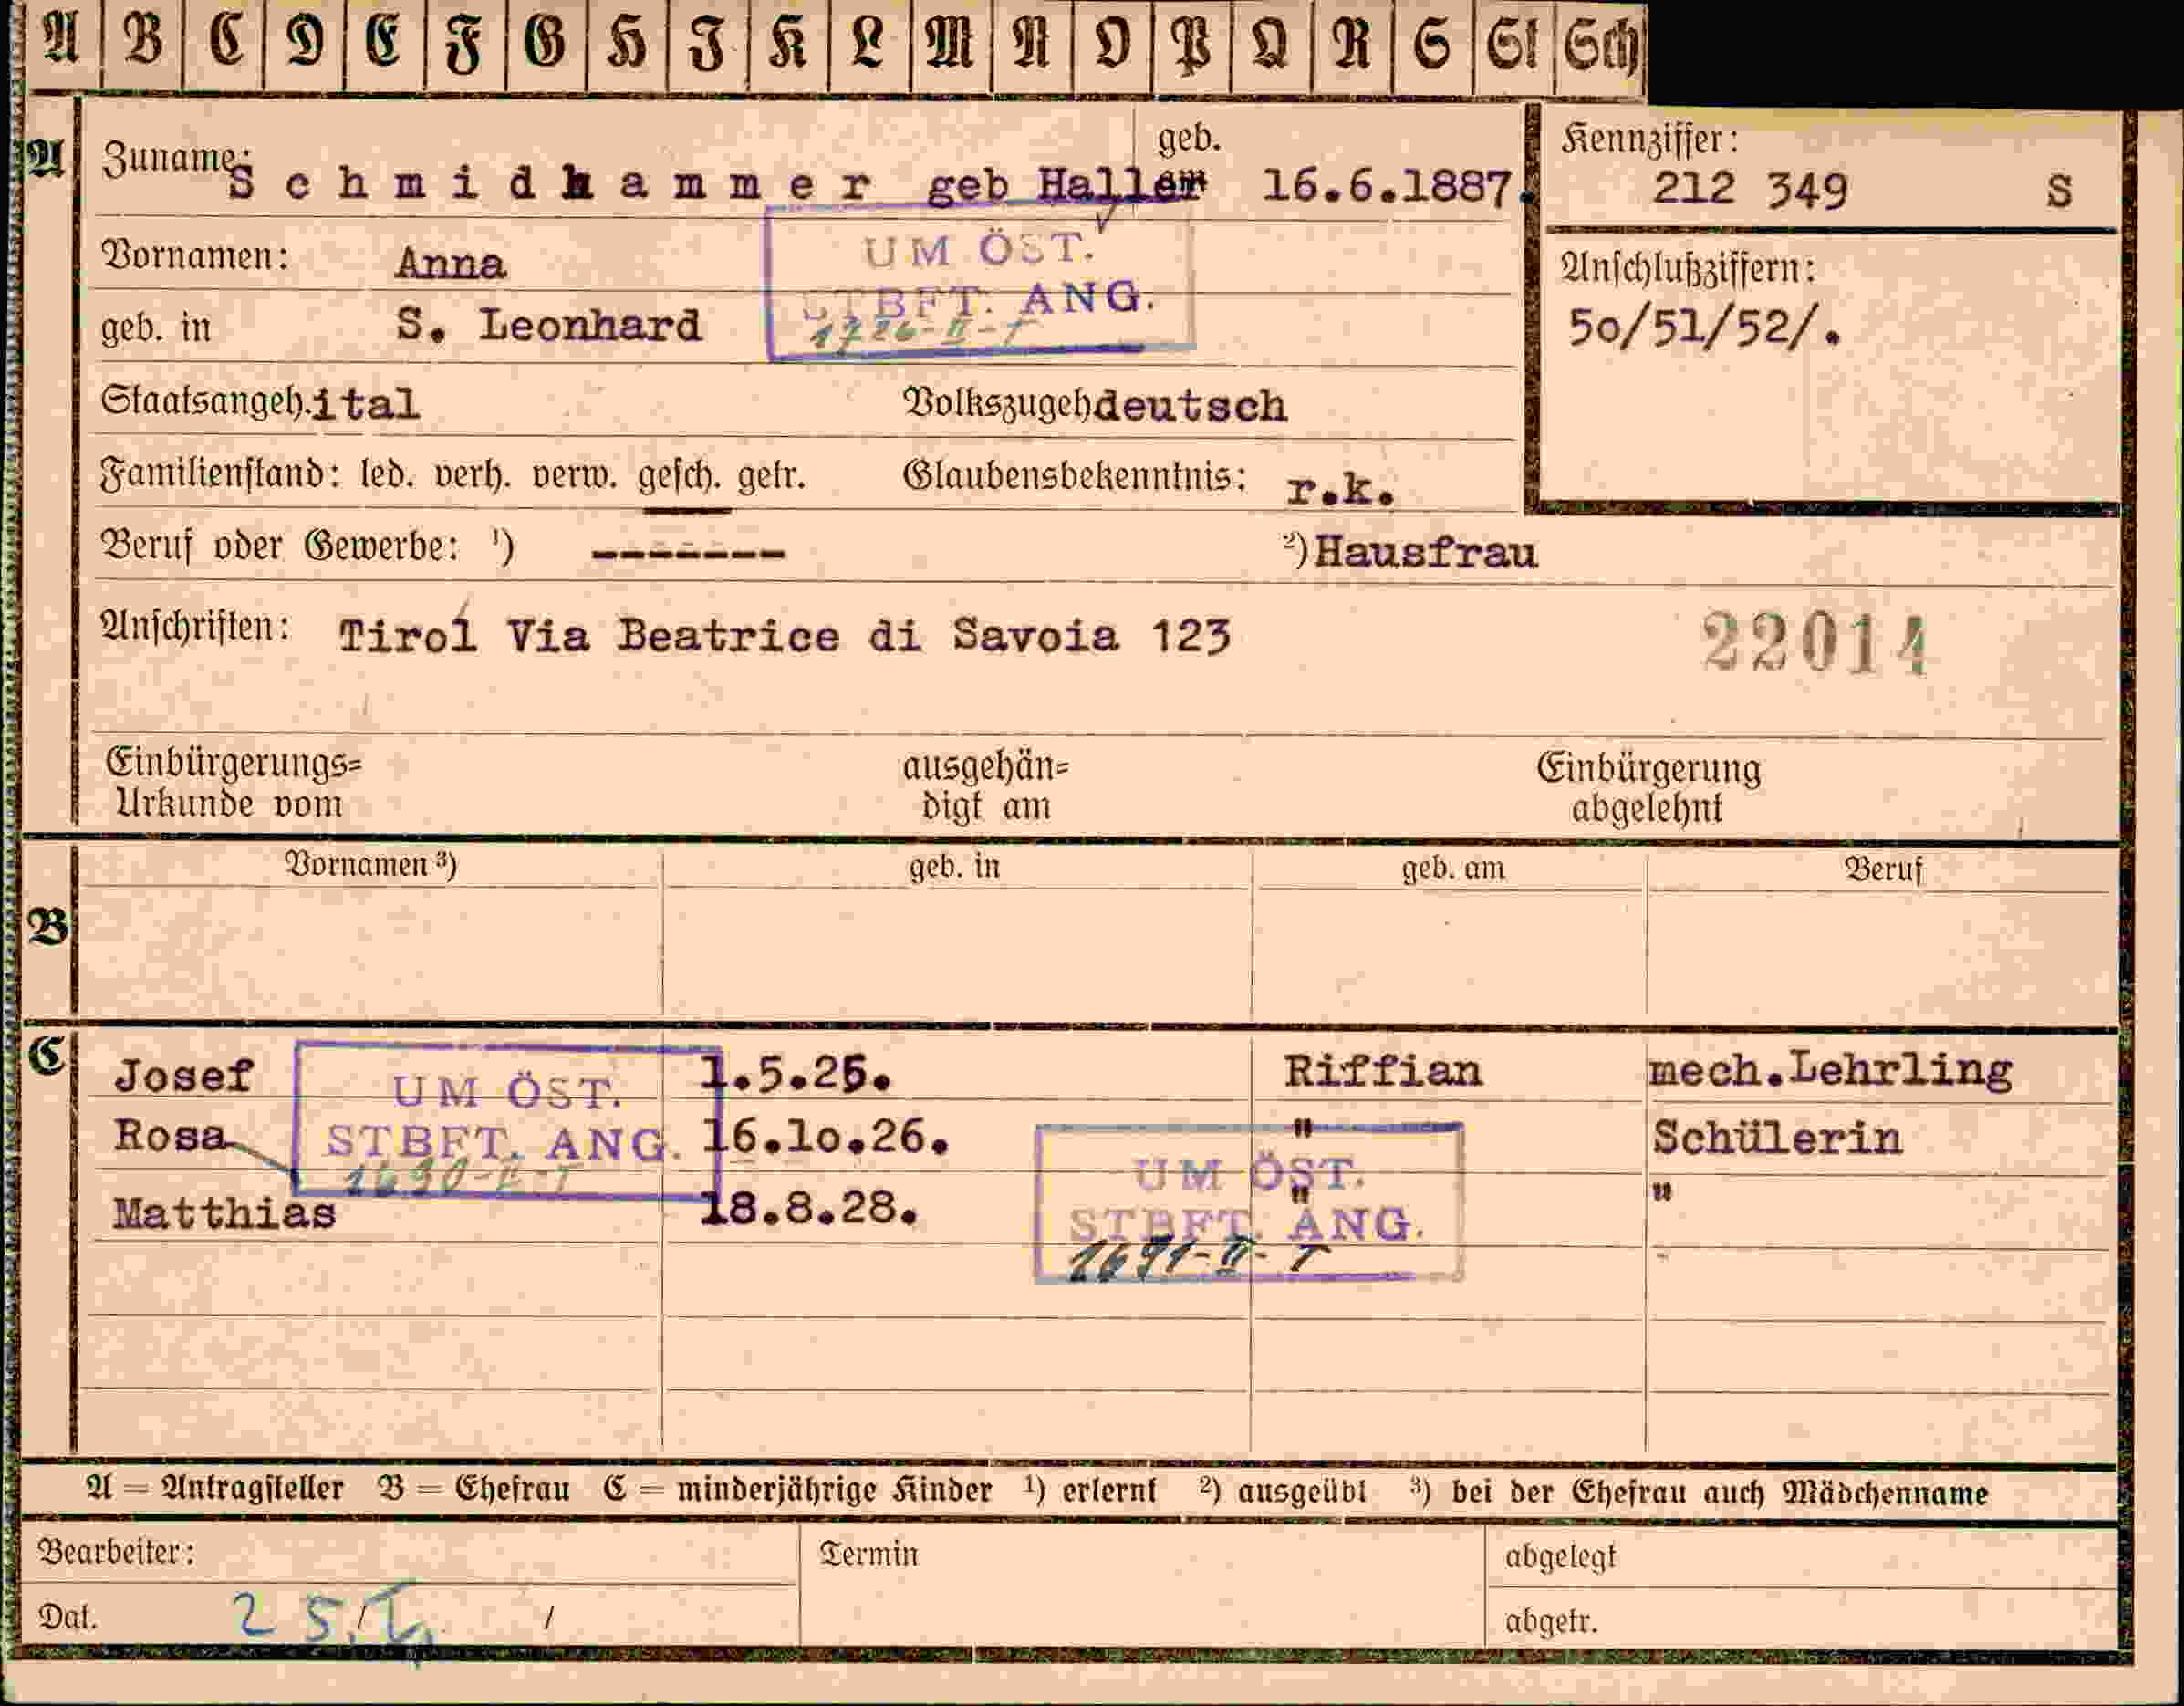 A B C D E F G H J K L M N O P Q R S St Sch
A
Zuname: Schmidhammer geb Haller
geb. 16.6.1887.
Kennziffer:
212 349 S
Vornamen: Anna
UM ÖST.
STBFT. ANG.
1726-II-T
geb. in S. Leonhard
Anschlußziffern:
50/51/52/.
Staatsangeh. ital Volkszugeh deutsch
Familienstand: led. verh. verw. gesch. getr. Glaubensbekenntnis: r.k.
Beruf oder Gewerbe: ¹) ------- ²) Hausfrau
Anschriften: Tirol Via Beatrice di Savoia 123
22014
Einbürgerungs= ausgehän= Einbürgerung
Urkunde vom digt am abgelehnt
B
Vornamen ³) geb. in geb. am Beruf
C
Josef 1.5.25. Riffian mech.Lehrling
UM ÖST.
Rosa 16.10.26. " Schülerin
STBFT. ANG.
1690-II-T
Matthias 18.8.28. " "
UM ÖST.
STBFT. ANG.
1691-II-T
A = Antragsteller B = Ehefrau C = minderjährige Kinder ¹) erlernt ²) ausgeübt ³) bei der Ehefrau auch Mädchenname
Bearbeiter: Termin abgelegt
Dat. 25./ / abgetr.